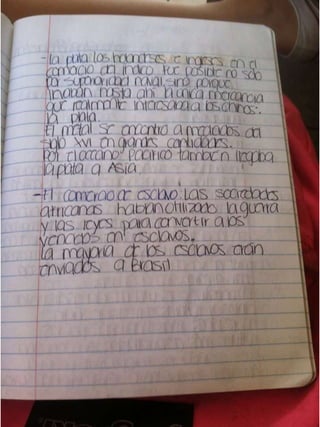 -la plata los holandeses e ingleses en el
comercio del indico Fue posible no solo
por superioridad naval, sino porque
llevaban hasta ahi la unica mercancia
que realmente interesaba a los chinos:
la plata.
El metal se encontro a mediados del
siglo XVI en grandes cantidades.
Por el oceano Pacifico tambien llegaba
la plata a Asia.
-El comercio de esclavo. Las sociedades
africanas habian utilizado la guerra
y las leyes para convertir a los
vencidos en esclavos.
La mayoria de los esclavos eran
enviados a Brasil